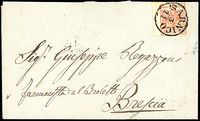 SARNICO
Sigr. Giuseppe Ragazzoni
farmacista al Broletto
Brescia